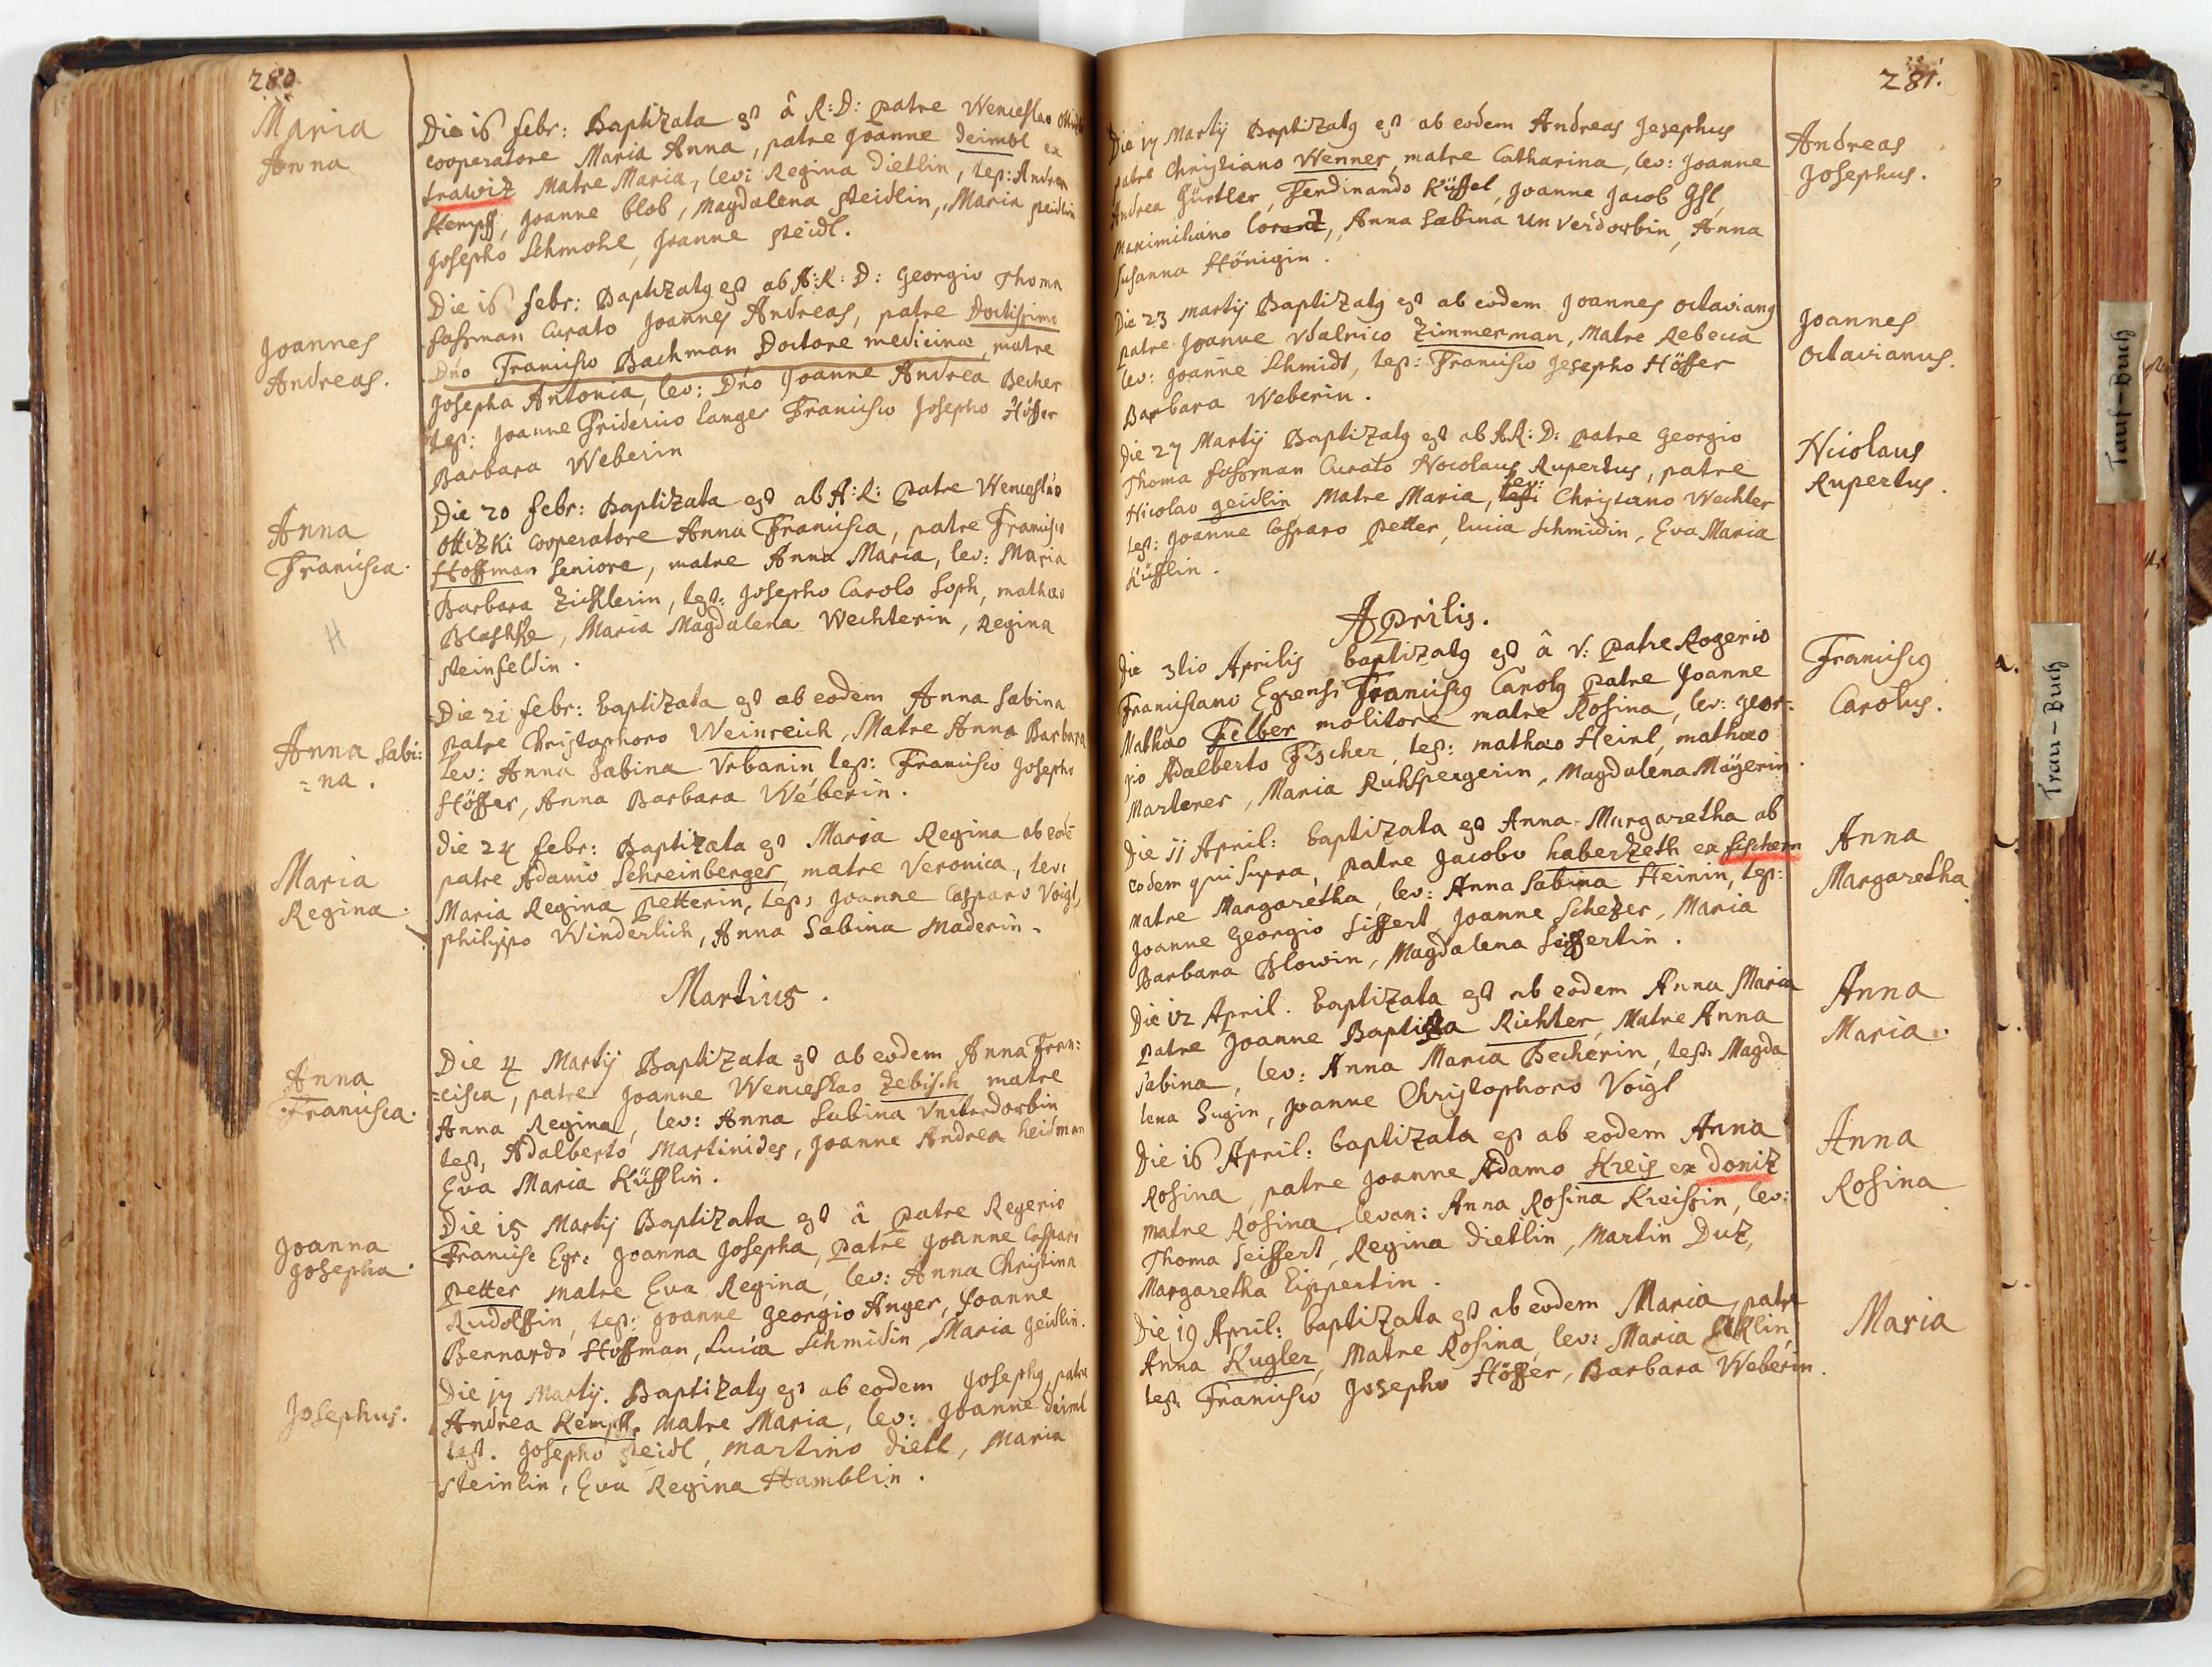 280.
Maria
Anna
Die 16 febr: Baptizata est â R: D: Patre Wenceslao
cooperatore Maria Anna, patre Joanne Deimbl ex
trawiz Matre Maria, lev: Regina Dietlin, test: Andrea
Kempff, Joanne blob, Magdalena steidlin, Maria steidlin
Josepho Schmohl, Joanne steidl.
Joannes
Andreas.
Die 16 febr: Baptizatus est ab A: R: D: Georgio Thoma
fassman Curato Joannes Andreas, patre Doctissimo
Dno Francisco Bachman Doctore medicinæ, matre
Josepha Antonia, lev: Dno Joanne Andrea Becher
test: Joanne Friderico langer Francisco Josepho Höffer
Barbara Weberin
Anna
Francisca.
Die 20 febr: Baptizata est ab A: R: Patre Wenceslao
Ottizki cooperatore Anna Francisca, patre Francisco
Hoffman Seniore, matre Anna Maria, lev: Maria
Barbara Zicklerin, test: Josepho Carolo Soph, mathæo
Blaschke, Maria Magdalena Wechterin, Regina
steinfeldin.
Anna Sabi:
=na.
Die 21 febr: baptizata est ab eodem Anna Sabina
patre Christophoro Weinreich, Matre Anna Barbara
lev: Anna Sabina Urbanin, test: Francisco Josepho
Höffer, Anna Barbara Weberin.
Maria
Regina.
Die 24 febr: Baptizata est Maria Regina ab eodē
patre Adamo Schreinberger, matre Veronica, lev:
Maria Regina petterin, test: Joanne Casparo Voigt,
philippo Winderlich, Anna Sabina Maderin.
Martius.
Anna
Francisca.
Die 4 Martij Baptizata est ab eodem Anna Fran:
=cisca, patre Joanne Wenceslao Zebisch matre
Anna Regina, lev: Anna Sabina Unverdorbin
test, Adalberto Martinides, Joanne Andrea heidman
Eva Maria Küfflin.
Joanna
Josepha.
Die 15 Martij Baptizata est â Patre Regerio
Francisc Egr: Joanna Josepha, Patre Joanne Casparo
petter matre Eva Regina, lev: Anna Christina
Rudolffin, test: Joanne Georgio Anger, Joanne
Bernardo Hoffman, Lucia Schmidin, Maria geidlin.
Josephus.
Die 17 Martij. Baptizatus est ab eodem Josephus, patre
Andrea Kempff, matre Maria, lev: Joanne deiml
test. Josepho steidl, martino dietl, Maria
steinlin, Eva Regina Hamblin.
281.
Die 17 Martij Baptizatus est ab eodem Andreas Josephus
patre Christiano Wenner, matre Catharina, lev: Joanne
Andrea Gürtler, Ferdinando Küffel, Joanne Jacob Gsl,
Maximiliano Lorentz, Anna Sabina Unverdorbin, Anna
Susanna Hönigin.
Andreas
Josephus.
Die 23 Martij Baptizatus est ab eodem Joannes octavianus
patre Joanne Udalrico Zimmerman, Matre Rebecca
lev: Joanne Schmidt, test: Francisco Josepho Höffer
Barbara Weberin.
Joannes
octavianus.
Die 27 Martij Baptizatus est ab A R: D: Patre Georgio
Thoma fassman Curato Nocolaus Rupertus, patre
Nicolao geidlin Matre Maria, lev: Christano Wechter
test: Joanne Casparo Petter, Lucia Schmidin, Eva Maria
Küfflin.
Nicolaus
Rupertus.
Aprilis.
Die 3tio Aprilis baptizatus est â V: Patre Rogerio
Franciscano Egrensi Franciscus Carolus Patre Joanne
Mathæo Felber molitore matre Rosina, lev: Geor:
gio Adalberto Fischer, test: mathæo Heinl, mathæo
Marterer, Maria Ruhspergerin, Magdalena Mäyerin.
Franciscus
Carolus.
Die 11 April: baptizata est Anna Margaretha ab
eodem qui supra, patre Jacobo haberzeth ex fischern
matre Margaretha, lev: Anna Sabina Heinin, test:
Joanne Georgio Siffert, Joanne Schezer, Maria
Barbara Blowin, Magdalena Seiffertin.
Anna
Margaretha
Die 12 April. baptizata est ab eodem Anna Maria
patre Joanne Baptista Richter, Matre Anna
Sabina, lev: Anna Maria Becherin, test: Magda
lena Sugin, Joanne Christophoro Voigl
Anna
Maria.
Die 16 April: baptizata est ab eodem Anna
Rosina, patre Joanne Adamo Kreis ex doniz
matre Rosina, levan: Anna Rosina Kreissin, lev:
Thoma Seiffert, Regina dietlin, Martin Duz,
Margaretha Lippertin.
Anna
Rosina
Die 19 April: baptizata est ab eodem Maria, patre
Anna Kugler, Matre Rosina, lev: Maria
test. Francisco Josepho Höffer, Barbara Weberin.
Maria
Tauf-Buch
Trau-Buch